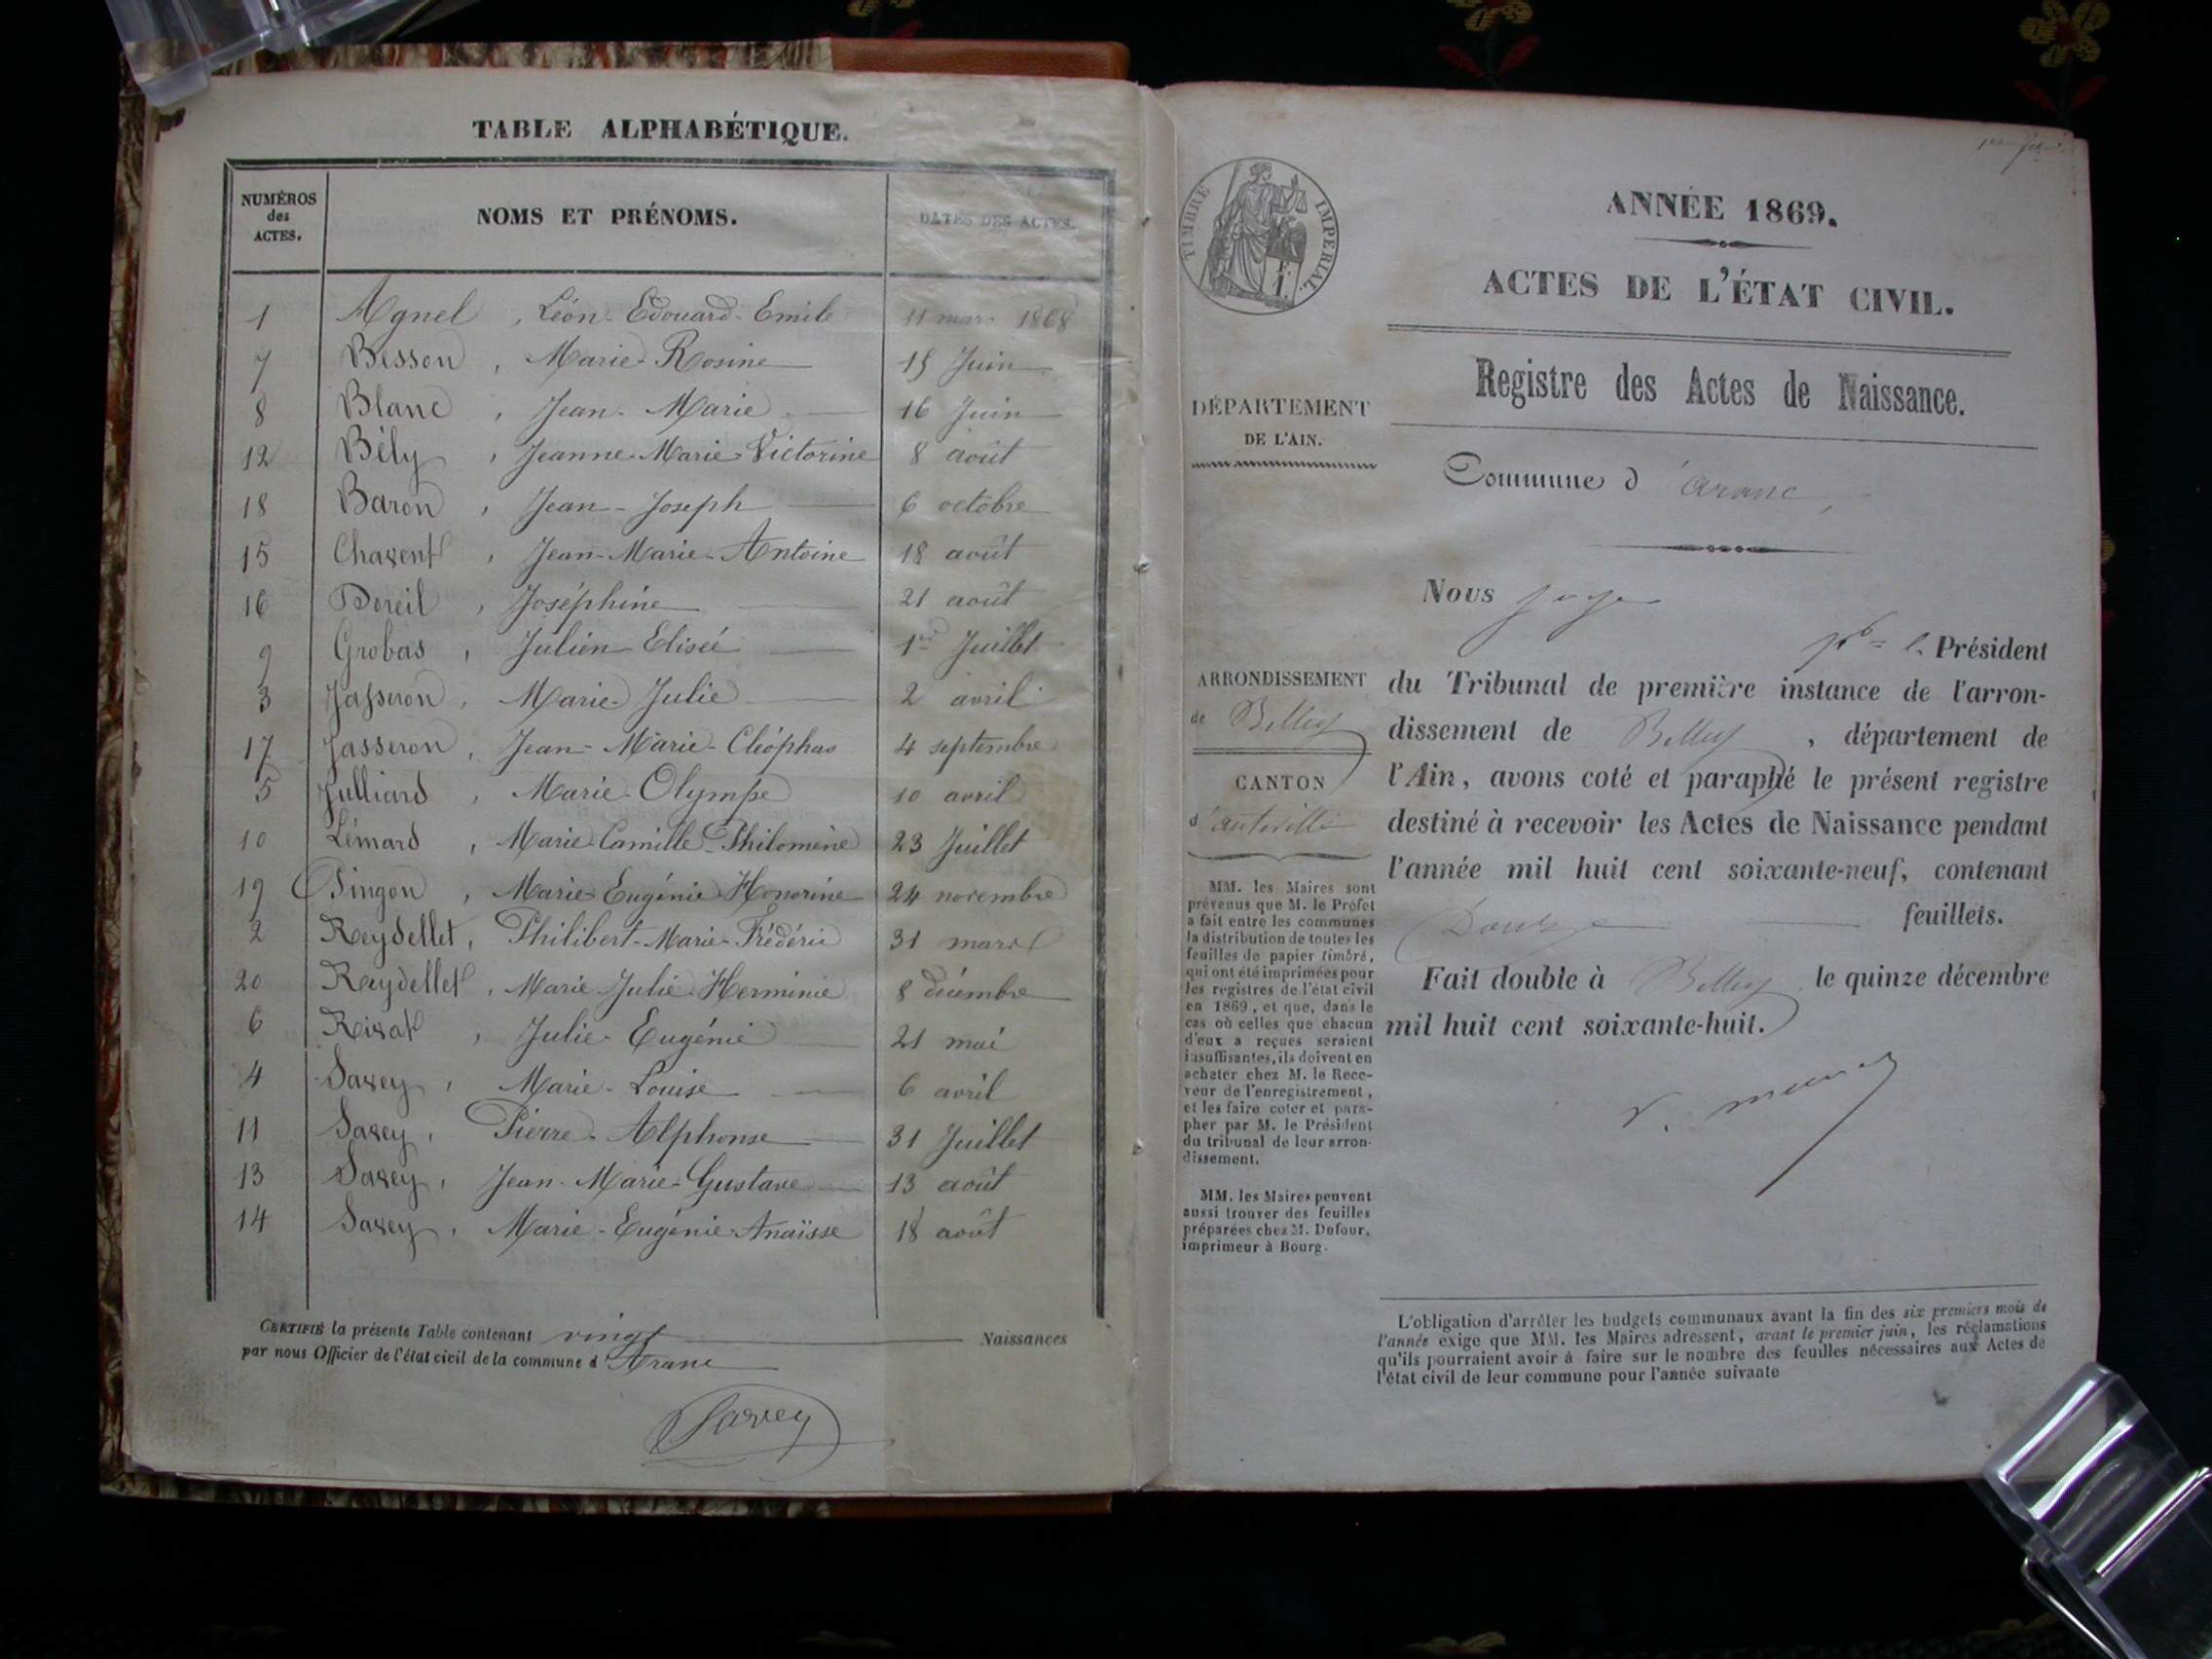 TABLE ALPHABÉTIQUE.
NUMÉROS
des
ACTES.
NOMS ET PRÉNOMS.
DATES DES ACTES.
1 Agnel, Léon-Edouard-Emile 11 mars 1868
7 Besson, Marie-Rosine 15 Juin
8 Blanc, Jean-Marie 16 Juin
12 Bély, Jeanne-Marie-Victorine 8 août
18 Baron, Jean-Joseph 6 octobre
15 Chavent, Jean-Marie-Antoine 18 août
16 Doreil, Joséphine 21 août
9 Grobas, Julien Elisée 1er Juillet
3 Jasseron, Marie Julie 2 avril
17 Jasseron, Jean-Marie-Cléophas 4 septembre
5 Julliard, Marie Olympe 10 avril
10 Lémard, Marie Camille Philomène 23 Juillet
19 Pingon, Marie Eugénie Honorine 24 novembre
2 Reydellet, Philibert-Marie-Frédéric 31 mars
20 Reydellet, Marie Julie Herminie 8 décembre
6 Rivat, Julie-Eugénie 21 mai
4 Savey, Marie-Louise 6 avril
11 Savey, Pierre-Alphonse 31 Juillet
13 Savey, Jean-Marie-Gustave 13 août
14 Savey, Marie-Eugénie-Anaïsse 18 août
CERTIFIÉ la présente Table contenant vingt Naissances
par nous Officier de l'état civil de la commune d'Aranc
Savey
TIMBRE IMPÉRIAL.
ANNÉE 1869.
ACTES DE L'ÉTAT CIVIL.
Registre des Actes de Naissance.
DÉPARTEMENT
DE L'AIN.
Commune d'Aranc
Nous juge
Président
ARRONDISSEMENT
de Belley
CANTON
d'hauteville
du Tribunal de première instance de l'arron-
dissement de Belley, département de
l'Ain, avons coté et paraphé le présent registre
destiné à recevoir les Actes de Naissance pendant
l'année mil huit cent soixante-neuf, contenant
Douze feuillets.
Fait double à Belley, le quinze décembre
mil huit cent soixante-huit.
MM. les Maires sont
prévenus que M. le Préfet
a fait entre les communes
la distribution de toutes les
feuilles de papier timbré,
qui ont été imprimées pour
les registres de l'état civil
en 1869, et que, dans le
cas où celles que chacun
d'eux a reçues seraient
insuffisantes, ils doivent en
acheter chez M. le Rece-
veur de l'enregistrement,
et les faire coter et para-
pher par M. le Président
du tribunal de leur arron-
dissement.
MM. les Maires peuvent
aussi trouver des feuilles
préparées chez M. Dufour,
imprimeur à Bourg.
L'obligation d'arrêter les budgets communaux avant la fin des six premiers mois de
l'année exige que MM. les Maires adressent, avant le premier juin, les réclamations
qu'ils pourraient avoir à faire sur le nombre des feuilles nécessaires aux Actes de
l'état civil de leur commune pour l'année suivante